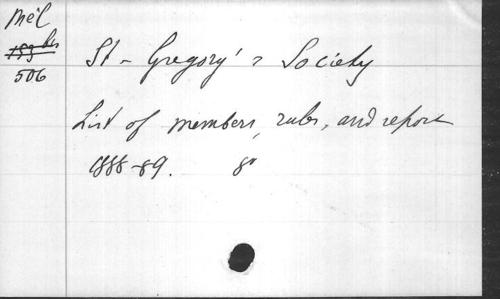 Mél
153 bis
506
St-Gregory's Society
List of members, rules, and report
1888-89. 8°